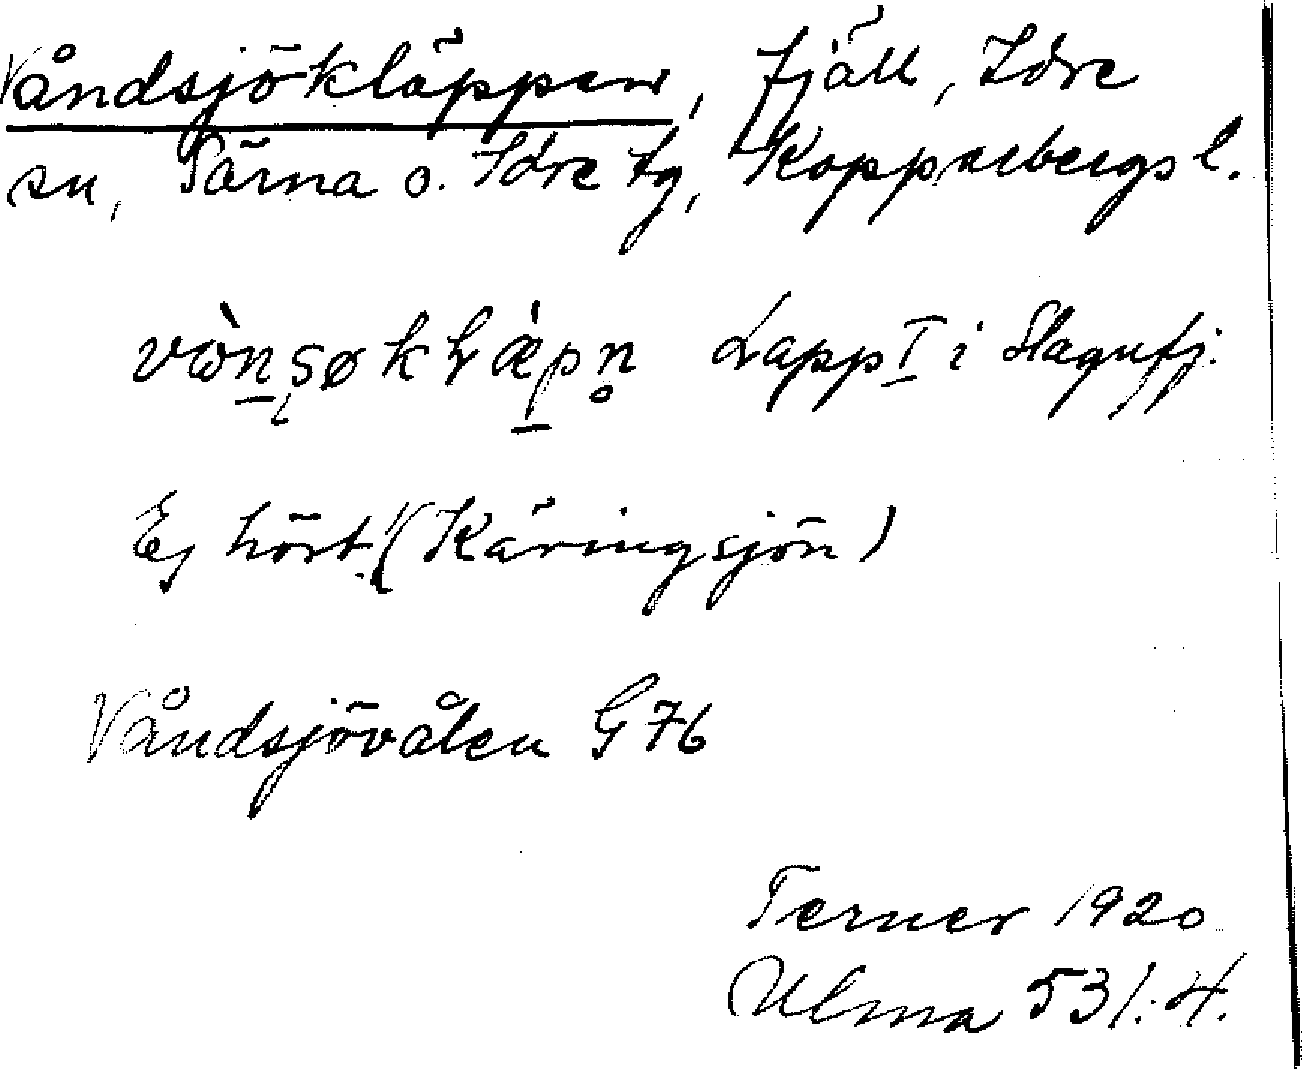 Våndsjökläppen, fjäll, Idre
sn, Särna o. Idre tg, Kopparbergs l.
vὼn̠s̨øklæ̀pn̥ Lapp I i Slagufj.
Ej hört (Käringsjön)
Våndsjövålen G 76
Terner 1920
Ulma 531:4.